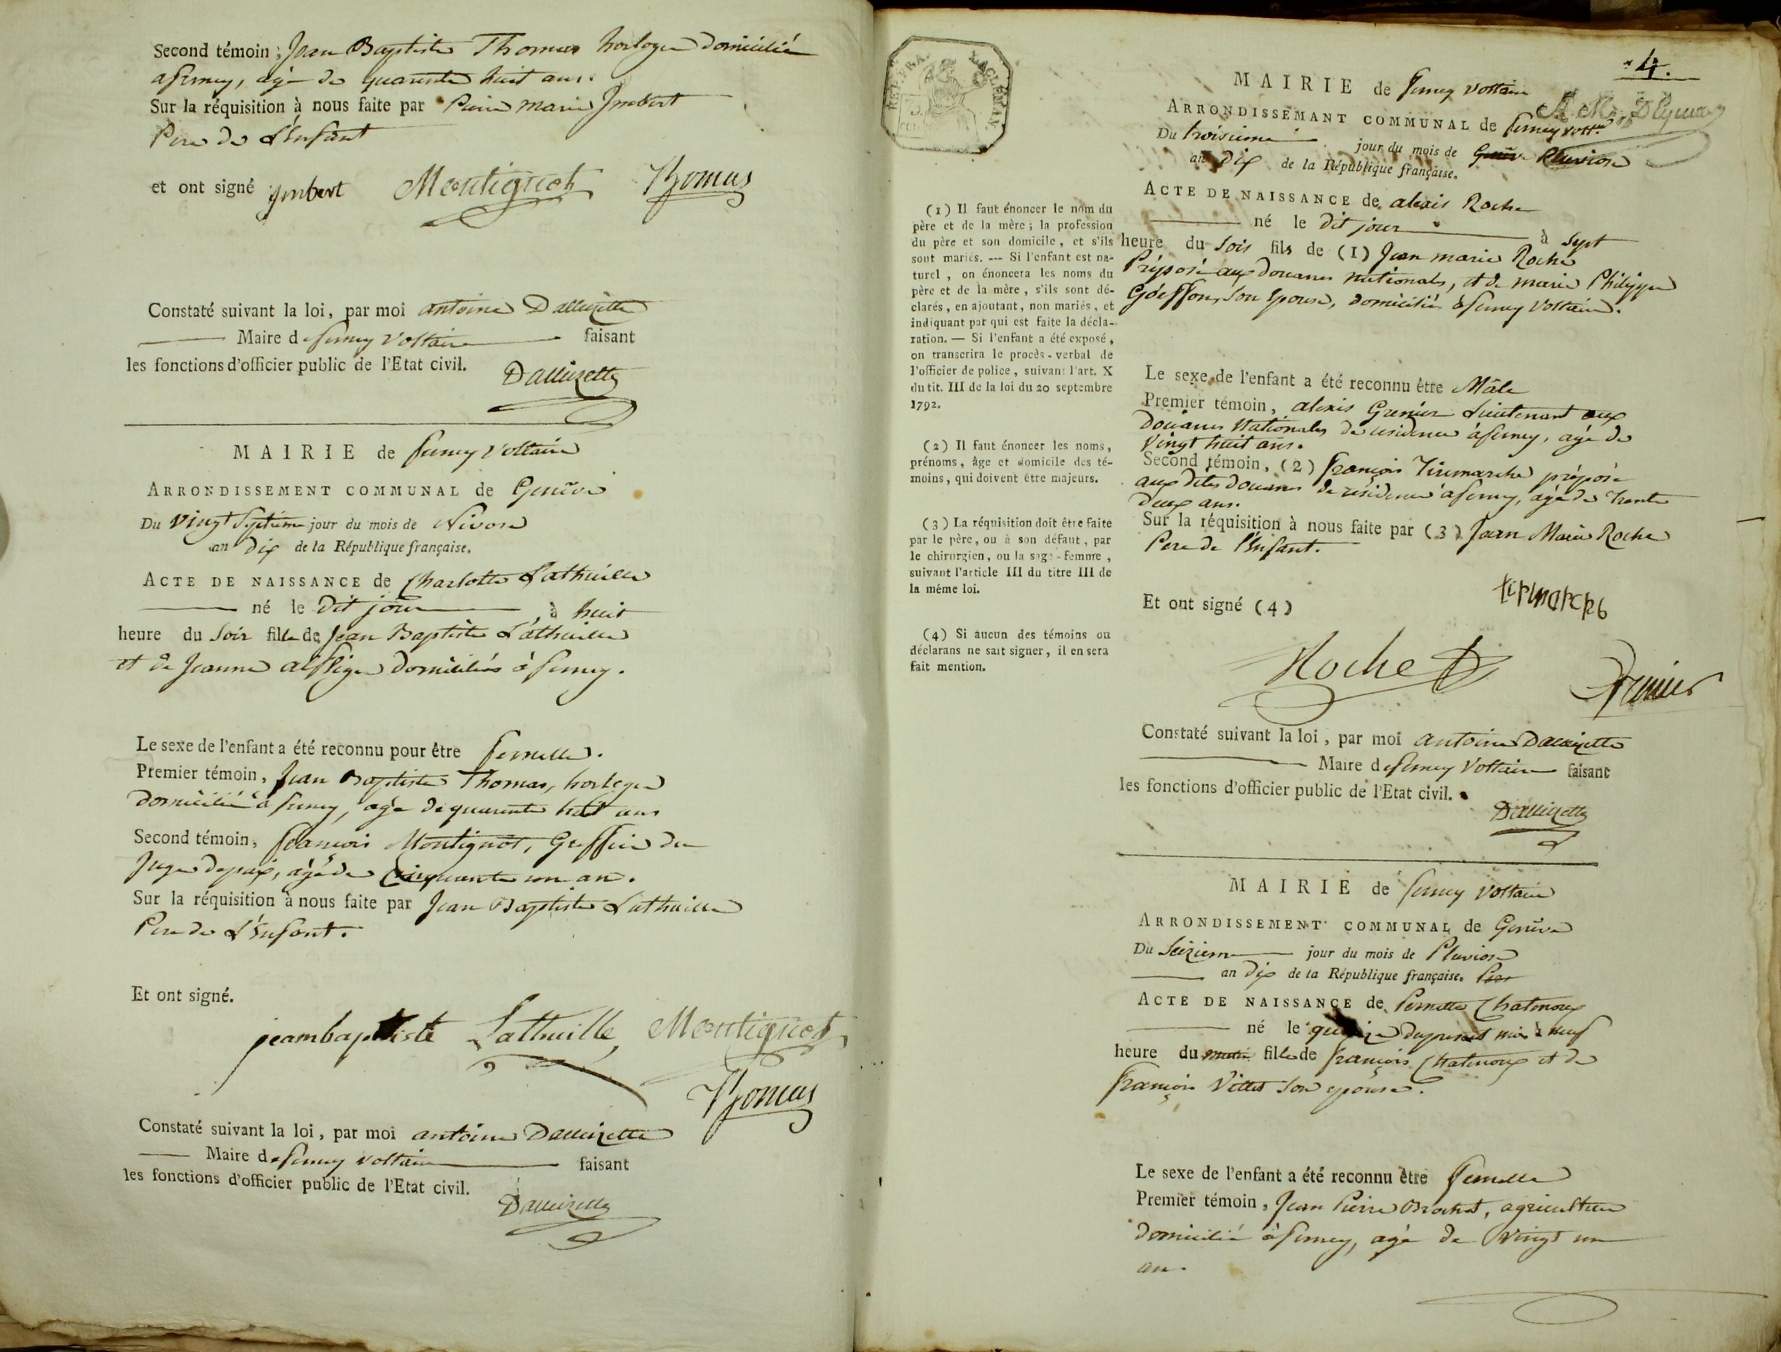 Second témoin, Jean Baptiste Thomas horloger domicilié
a ferney, agé de quarante huit ans.
Sur la réquisition à nous faite par Pierre marie Jmbert
Pere de L'Enfant
et ont signé Jmbert Montignot Thomas
Constaté suivant la loi, par moi antoine Dallizette
Maire de ferney Voltaire faisant
les fonctions d'officier public de l'Etat civil.
Dallizette
MAIRIE de ferney Voltaire
ARRONDISSEMENT COMMUNAL de Genêve
Du vingt Septieme jour du mois de Nivose
an Dix de la République française.
ACTE DE NAISSANCE de Charlotte Lathuille
né le dit jour à huit
heure du Soir fille de Jean Baptiste Lathuille
et de Jeanne domiciliés à ferney.
Le sexe de l'enfant a été reconnu pour être femelle.
Premier témoin, Jean Baptiste Thomas, horloger
domicilié à ferney, agé de quarante huit ans
Second témoin, françois Montignot, Greffier du
Juge de paix, agé de Cinquante un an.
Sur la réquisition à nous faite par Jean Baptiste Lathuille
Pere de L'Enfant.
Et ont signé.
jeambaptiste Lathuille, Montignot
Thomas
Constaté suivant la loi, par moi antoine Dallizette
Maire de ferney voltaire faisant
les fonctions d'officier public de l'Etat civil.
Dallizette
4.
MAIRIE de ferney Voltaire
ARRONDISSEMANT COMMUNAL de ferney Voltre
Du troisieme jour du mois de Genêve Pluviose
an Dix de la République française.
ACTE DE NAISSANCE de alexis Roche
né le dit jour à Sept
heure du Soir fils de (1) Jean marie Roche
Préposé aux douanes nationales, et de marie Philippe
son Epouse, domicilié à ferney Voltaire.
(1) Il faut énoncer le nom du
père et de la mère ; la profession
du père et son domicile, et s'ils
sont mariés. — Si l'enfant est na-
turel, on énoncera les noms du
père et de la mère, s'ils sont dé-
clarés, en ajoutant, non mariés, et
indiquant par qui est faite la décla-
ration. — Si l'enfant a été exposé,
on transcrira le procès-verbal de
l'officier de police, suivant l'art. X
du tit. III de la loi du 20 septembre
1792.
(2) Il faut énoncer les noms,
prénoms, âge et domicile des té-
moins, qui doivent être majeurs.
(3) La réquisition doit être faite
par le père, ou à son défaut, par
le chirurgien, ou la sage-femme,
suivant l'article III du titre III de
la même loi.
(4) Si aucun des témoins ou
déclarans ne sait signer, il en sera
fait mention.
Le sexe de l'enfant a été reconnu être Mâle
Premier témoin, alexis Grenier Lieutenant aux
Douanes Nationales de residence à ferney, agé de
Vingt huit ans.
Second témoin, (2) françois Tiremarche préposé
aux dites douanes de résidence à ferney, agé de trente
deux ans.
Sur la réquisition à nous faite par (3) Jean Marie Roche
Pere de l'Enfant.
Et ont signé (4) tirmarche
Roche Grenier
Constaté suivant la loi, par moi antoine Dallizette
Maire de ferney Voltaire faisant
les fonctions d'officier public de l'Etat civil.
Dallizette
MAIRIE de ferney Voltaire
ARRONDISSEMENT COMMUNAL de Genêve
Du Seizieme jour du mois de Pluviose
an Dix de la République française.
ACTE DE NAISSANCE de Pernette Chatenoux
né le quinze du present mois à neuf
heure du matin fille de françois Chatenoux et de
françoise Villet son epouse.
Le sexe de l'enfant a été reconnu être femelle
Premier témoin, Jean Pierre Brochet, agriculteur
domicilié à ferney, agé de vingt un
an.